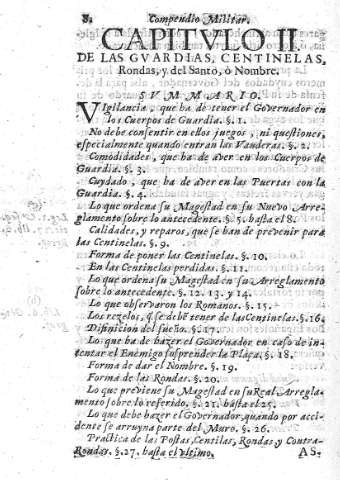 8. Compendio Militar.
CAPITVLO II.
DE LAS GVARDIAS, CENTINELAS,
Rondas, y del Santo, ò Nombre.
SVMMARIO.
VIgilancia, que ha de tener el Governador en
los Cuerpos de Guardia. §. 1.
No debe consentir en ellos juegos, ni questiones,
especialmente quando entran las Vanderas. §. 2.
Comodidades, que ha de aver en los Cuerpos de
Guardia. §. 3.
Cuydado, que ha de aver en las Puertas con la
Guardia. §. 4.
Lo que ordena su Magestad en su Nuevo Arre-
glamento sobre lo antecedente. §. 5. hasta el 8.
Calidades, y reparos, que se ban de prevenir para
las Centinelas. §. 9.
Forma de poner las Centinelas. §. 10.
En las Centinelas perdidas. §. 11.
Lo que ordena su Magestad en su Arreglamento
sobre lo antecedente. §. 12. 13. y 14.
Lo que observaron los Romanos. §. 15.
Los rezelos, q̃ se debẽ tener de las Centinelas. §. 16.
Difinicion del sueño. §. 17.
Lo que ha de hazer el Governador en caso de in-
tentar el Enemigo susprender la Plaça. §. 18.
Forma de dar el Nombre. §. 19.
Forma de las Rondas. §. 20.
Lo que previene su Magestad en su Real Arregla-
mento sobre lo referido. §. 21. hasta el 25.
Lo que debe hazer el Governador, quando por acci-
dente se arruyna parte del Muro. §. 26.
Practica de las Postas, Centilas, Rondas y Contra-
Rondas. §. 27. hasta el vltimo. AS-